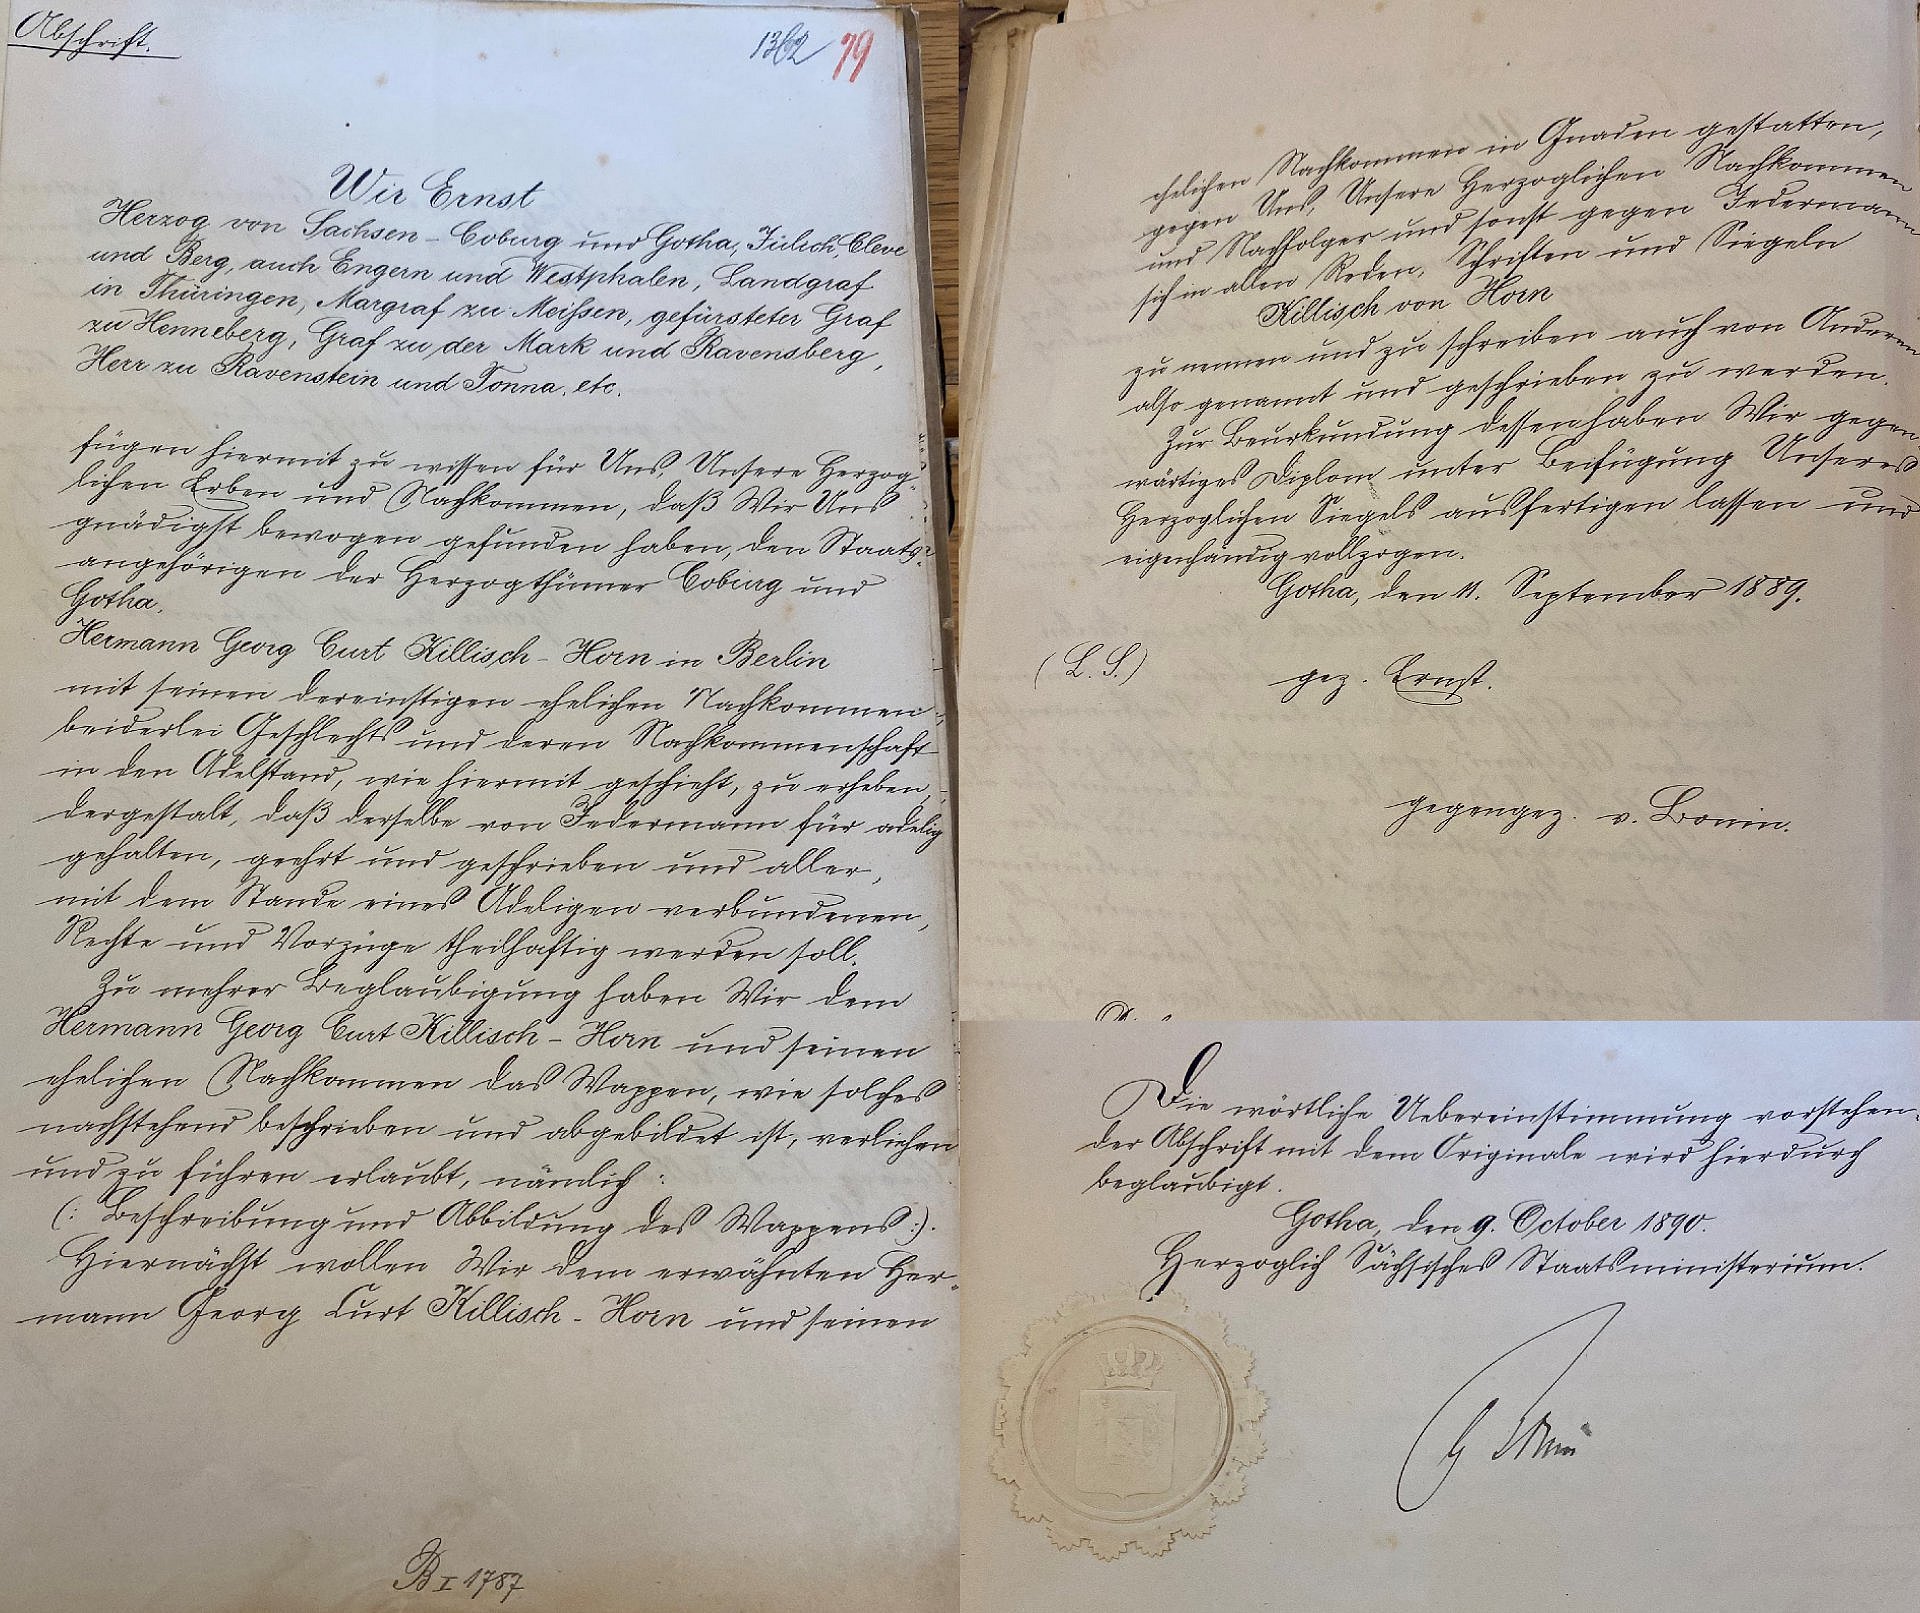 Abschrift.
1362 79
Wir Ernst
Herzog von Sachsen-Coburg und Gotha, Jülich, Cleve
und Berg, auch Engern und Westphalen, Landgraf
in Thüringen, Margraf zu Meißen, gefürsteter Graf
zu Henneberg, Graf zu der Mark und Ravensberg,
Herr zu Ravenstein und Tonna, etc.
fügen hiermit zu wissen für Uns, Unsere Herzog-
lichen Erben und Nachkommen, daß Wir Uns
gnädigst bewogen gefunden haben, den Staats-
angehörigen der Herzogthümer Coburg und
Gotha,
Hermann Georg Curt Killisch-Horn in Berlin
mit seinen dereinstigen ehelichen Nachkommen
beiderlei Geschlechts und deren Nachkommenschaft
in den Adelstand, wie hiermit geschieht, zu erheben,
dergestalt, daß derselbe von Jedermann für adelig
gehalten, geehrt und geschrieben und aller,
mit dem Stande eines Adeligen verbundenen,
Rechte und Vorzüge theilhaftig werden soll.
Zu mehrer Beglaubigung haben Wir dem
Hermann Georg Curt Killisch-Horn und seinen
ehelichen Nachkommen das Wappen, wie solches
nachstehend beschrieben und abgebildet ist, verliehen
und zu führen erlaubt, nämlich:
(: Beschreibung und Abbildung des Wappens :).
Hiernächst wollen Wir dem erwähnten Her-
mann Georg Curt Killisch-Horn und seinen
B I 1787
ehelichen Nachkommen in Gnaden gestatten,
gegen Uns, Unsere Herzoglichen Nachkommen
und Nachfolger und sonst gegen Jedermann
sich in allen Reden, Schriften und Siegeln
Killisch von Horn
zu nennen und zu schreiben auch von Anderen
also genannt und geschrieben zu werden.
Zur Beurkundung dessen haben Wir gegen-
wärtiges Diplom unter Beifügung Unseres
Herzoglichen Siegels ausfertigen lassen und
eigenhändig vollzogen.
Gotha, den 11. September 1889.
(L. S.) gez. Ernst.
gegengez. v. Bonin.
Die wörtliche Uebereinstimmung vorstehen-
der Abschrift mit dem Originale wird hierdurch
beglaubigt.
Gotha, den 9. October 1890.
Herzoglich Sächsisches Staatsministerium.